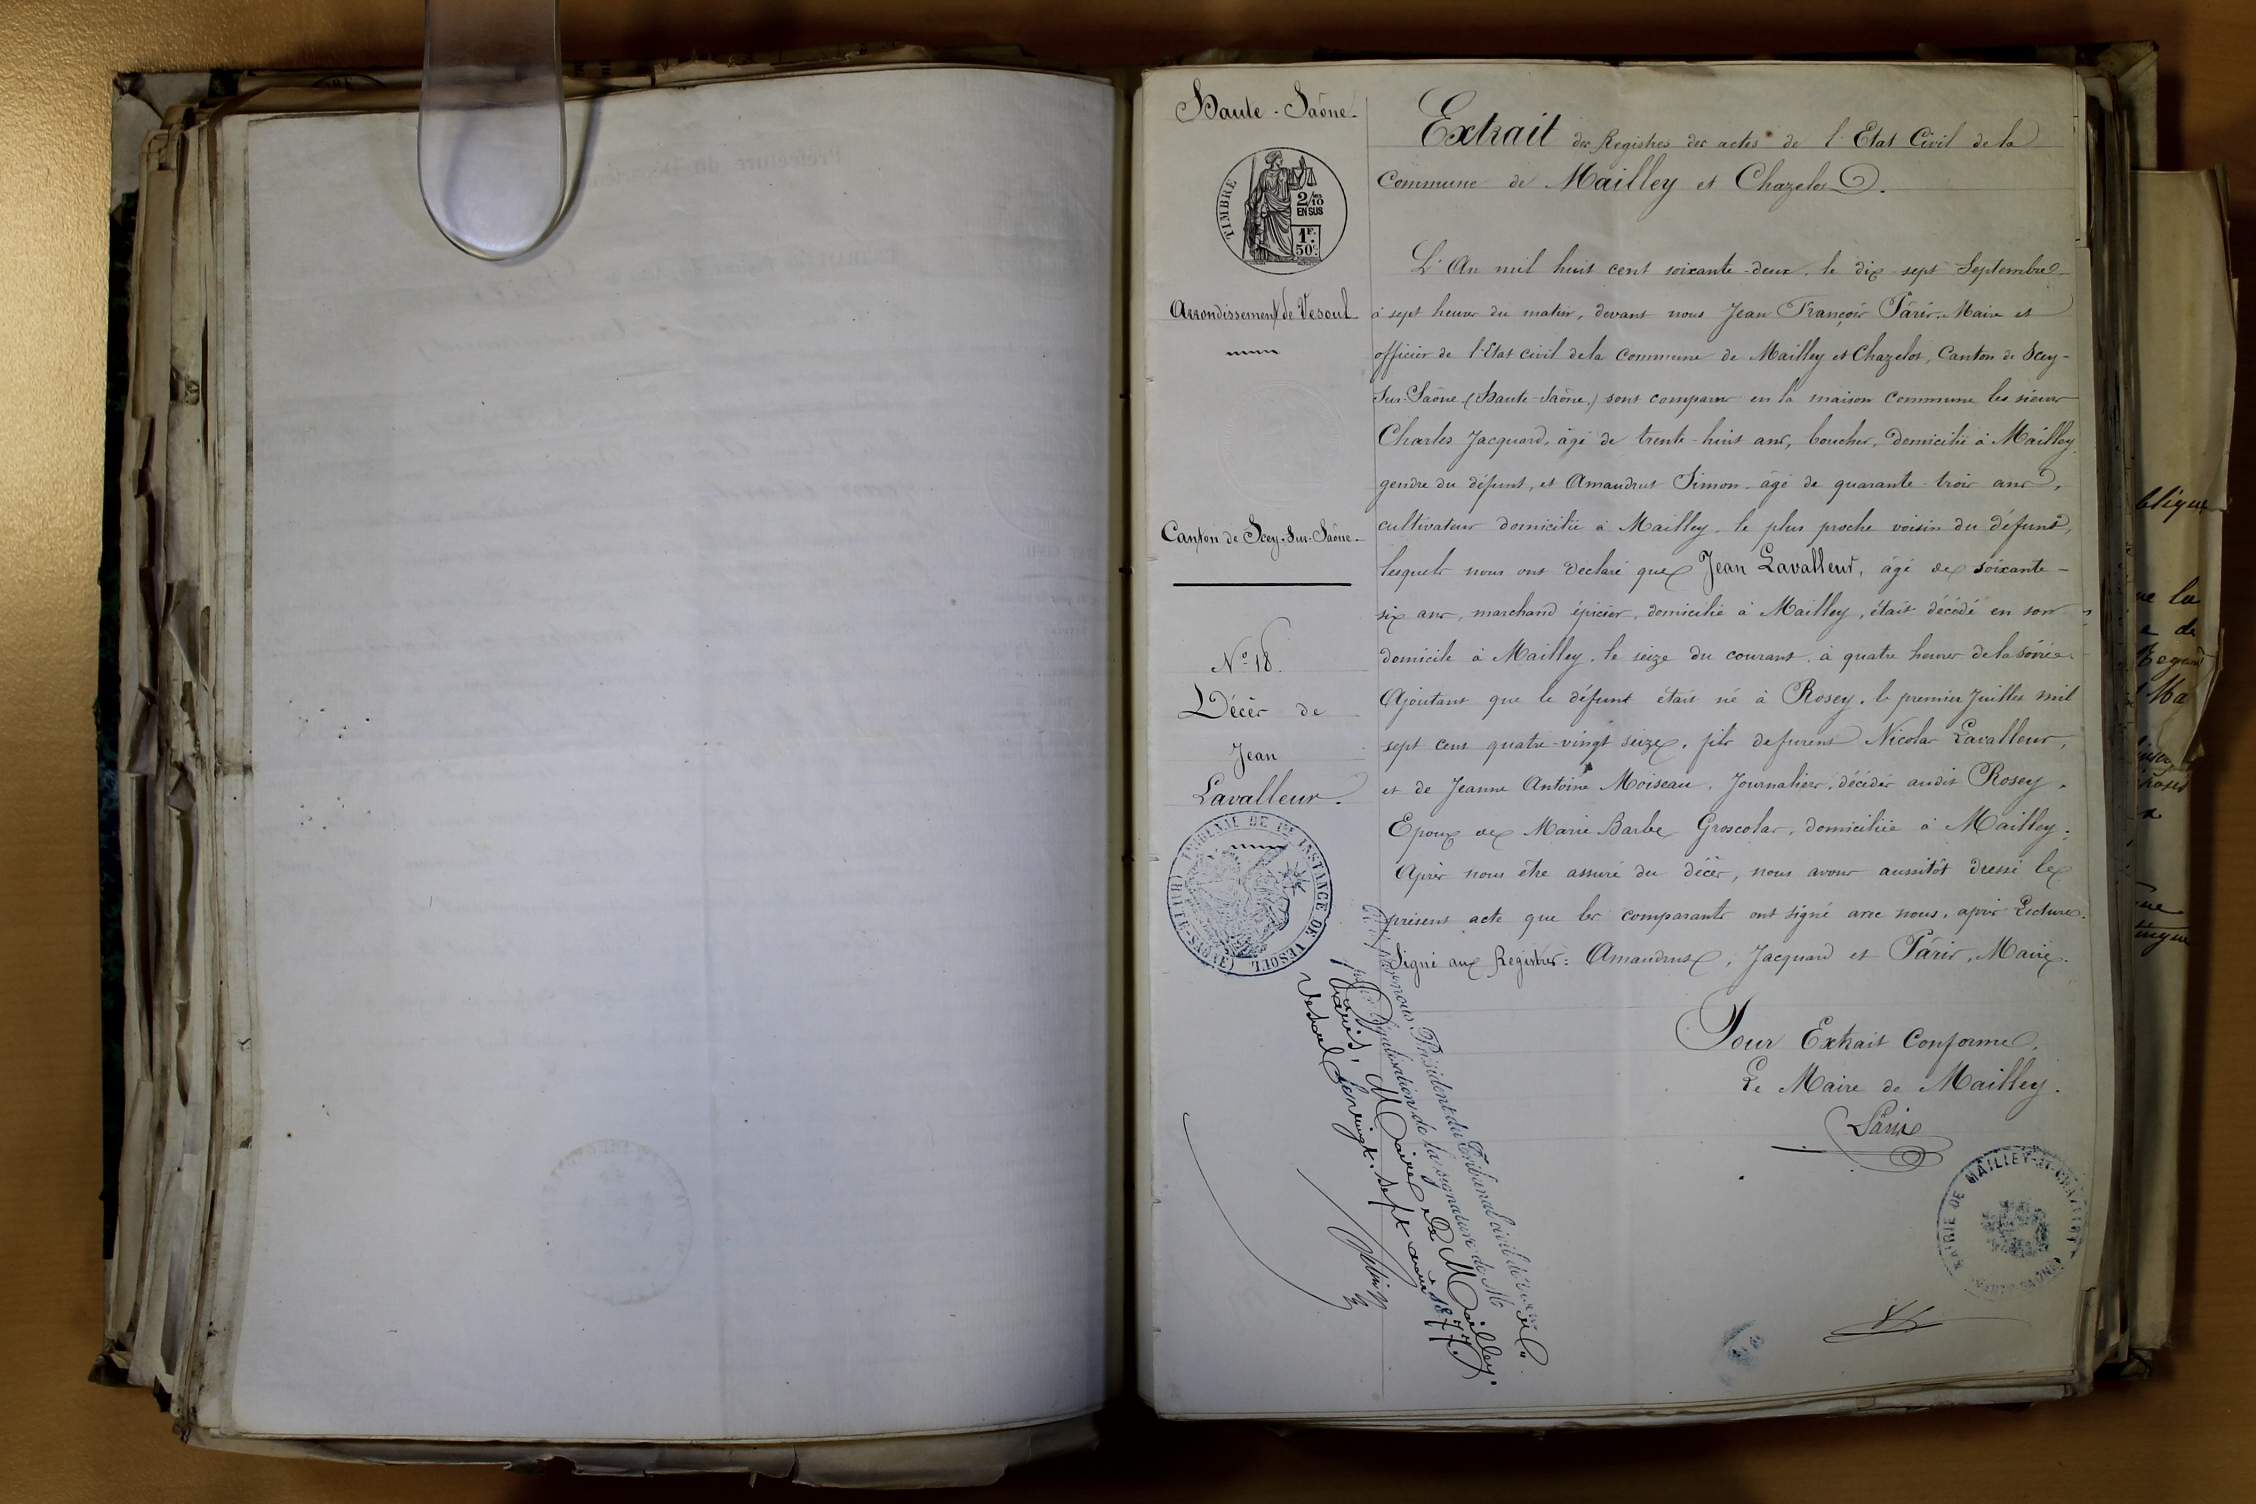 Haute-Saône.
TIMBRE
2/10
EN SUS
1F.
50c.
Arrondissement de Vesoul
Canton de Scey-sur-Saône.
N° 18.
Décès de
Jean
Lavalleur.
TRIBUNAL DE 1re INSTANCE DE VESOUL (HAUTE-SAÔNE)
Extrait des Registres des actes de l'Etat Civil de la
Commune de Mailley et Chazelot.
L'An mil huit cent soixante-deux, le dix-sept Septembre
à sept heures du matin, devant nous Jean François Pâris, Maire et
officier de l'Etat civil de la Commune de Mailley et Chazelot, Canton de Scey-
sur-Saône (Haute-Saône,) sont comparus en la maison Commune les sieurs
Charles Jacquard, âgé de trente-huit ans, boucher, domicilié à Mailley,
gendre du défunt, et Amaudrut Simon, âgé de quarante trois ans,
cultivateur domicilié à Mailley, le plus proche voisin du défunt,
lesquels nous ont déclaré que Jean Lavalleur, âgé de soixante-
six ans, marchand épicier, domicilié à Mailley, était décédé en son
domicile à Mailley, le seize du courant, à quatre heures de la soirée.
Ajoutant que le défunt était né à Rosey, le premier Juillet mil
sept cent quatre-vingt seize, fils de furent Nicolas Lavalleur,
et de Jeanne Antoine Moiseau, Journaliers, décédés audit Rosey,
Epoux de Marie Barbe Groscolas, domiciliée à Mailley.
Après nous être assuré du décès, nous avons aussitôt dressé le
présent acte que les comparants ont signé avec nous, après Lecture.
Signé aux Registres: Amaudrut, Jacquard et Pâris, Maire.
Pour Extrait Conforme,
Le Maire de Mailley.
Pâris
MAIRIE DE MAILLEY-et-CHAZELOT
(HAUTE-SAÔNE)
Vu par nous Président du Tribunal civil de Vesoul
pour légalisation de la signature de M.
Pâris, Maire de Mailley.
Vesoul le vingt-sept août 1877.
blique
ue la
e de
Ma